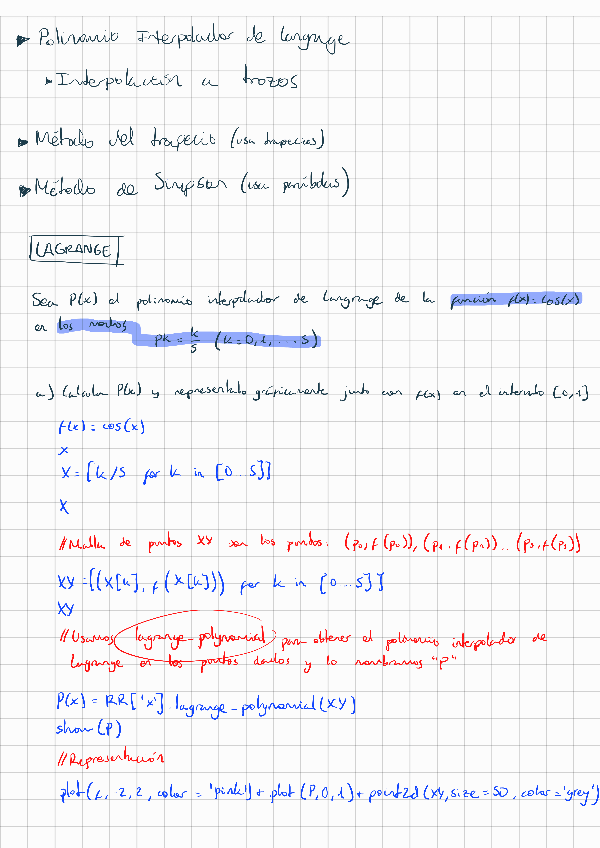 ▸ Polinomio Interpolador de Langrage
▸ Interpolación a trozos
▸ Método del trapecio (usa trapecios)
▸ Método de Simpson (usa parábolas)
LAGRANGE
Sea P(x) el polinomio interpolador de Langrange de la función f(x)=cos(x)
en los nodos pk = k/5 (k=0,1,...5)
a) Calcular P(x) y represéntalo gráficamente junto con f(x) en el intervalo [0,1]
f(x) = cos(x)
x
X = [k/5 for k in [0..5]]
X
//Malla de puntos XY son los puntos: (p0,f(p0)),(p1,f(p1))..(p5,f(p5))
XY = [(X[k], f(X[k])) for k in [0..5]]
XY
//Usamos lagrange_polynomial para obtener el polinomio interpolador de
Lagrange en los puntos dados y lo nombramos "P"
P(x) = RR['x'].lagrange_polynomial(XY)
show(P)
//Representación
plot(f,-2,2,color='pink')+plot(P,0,1)+point2d(XY,size=50,color='grey')